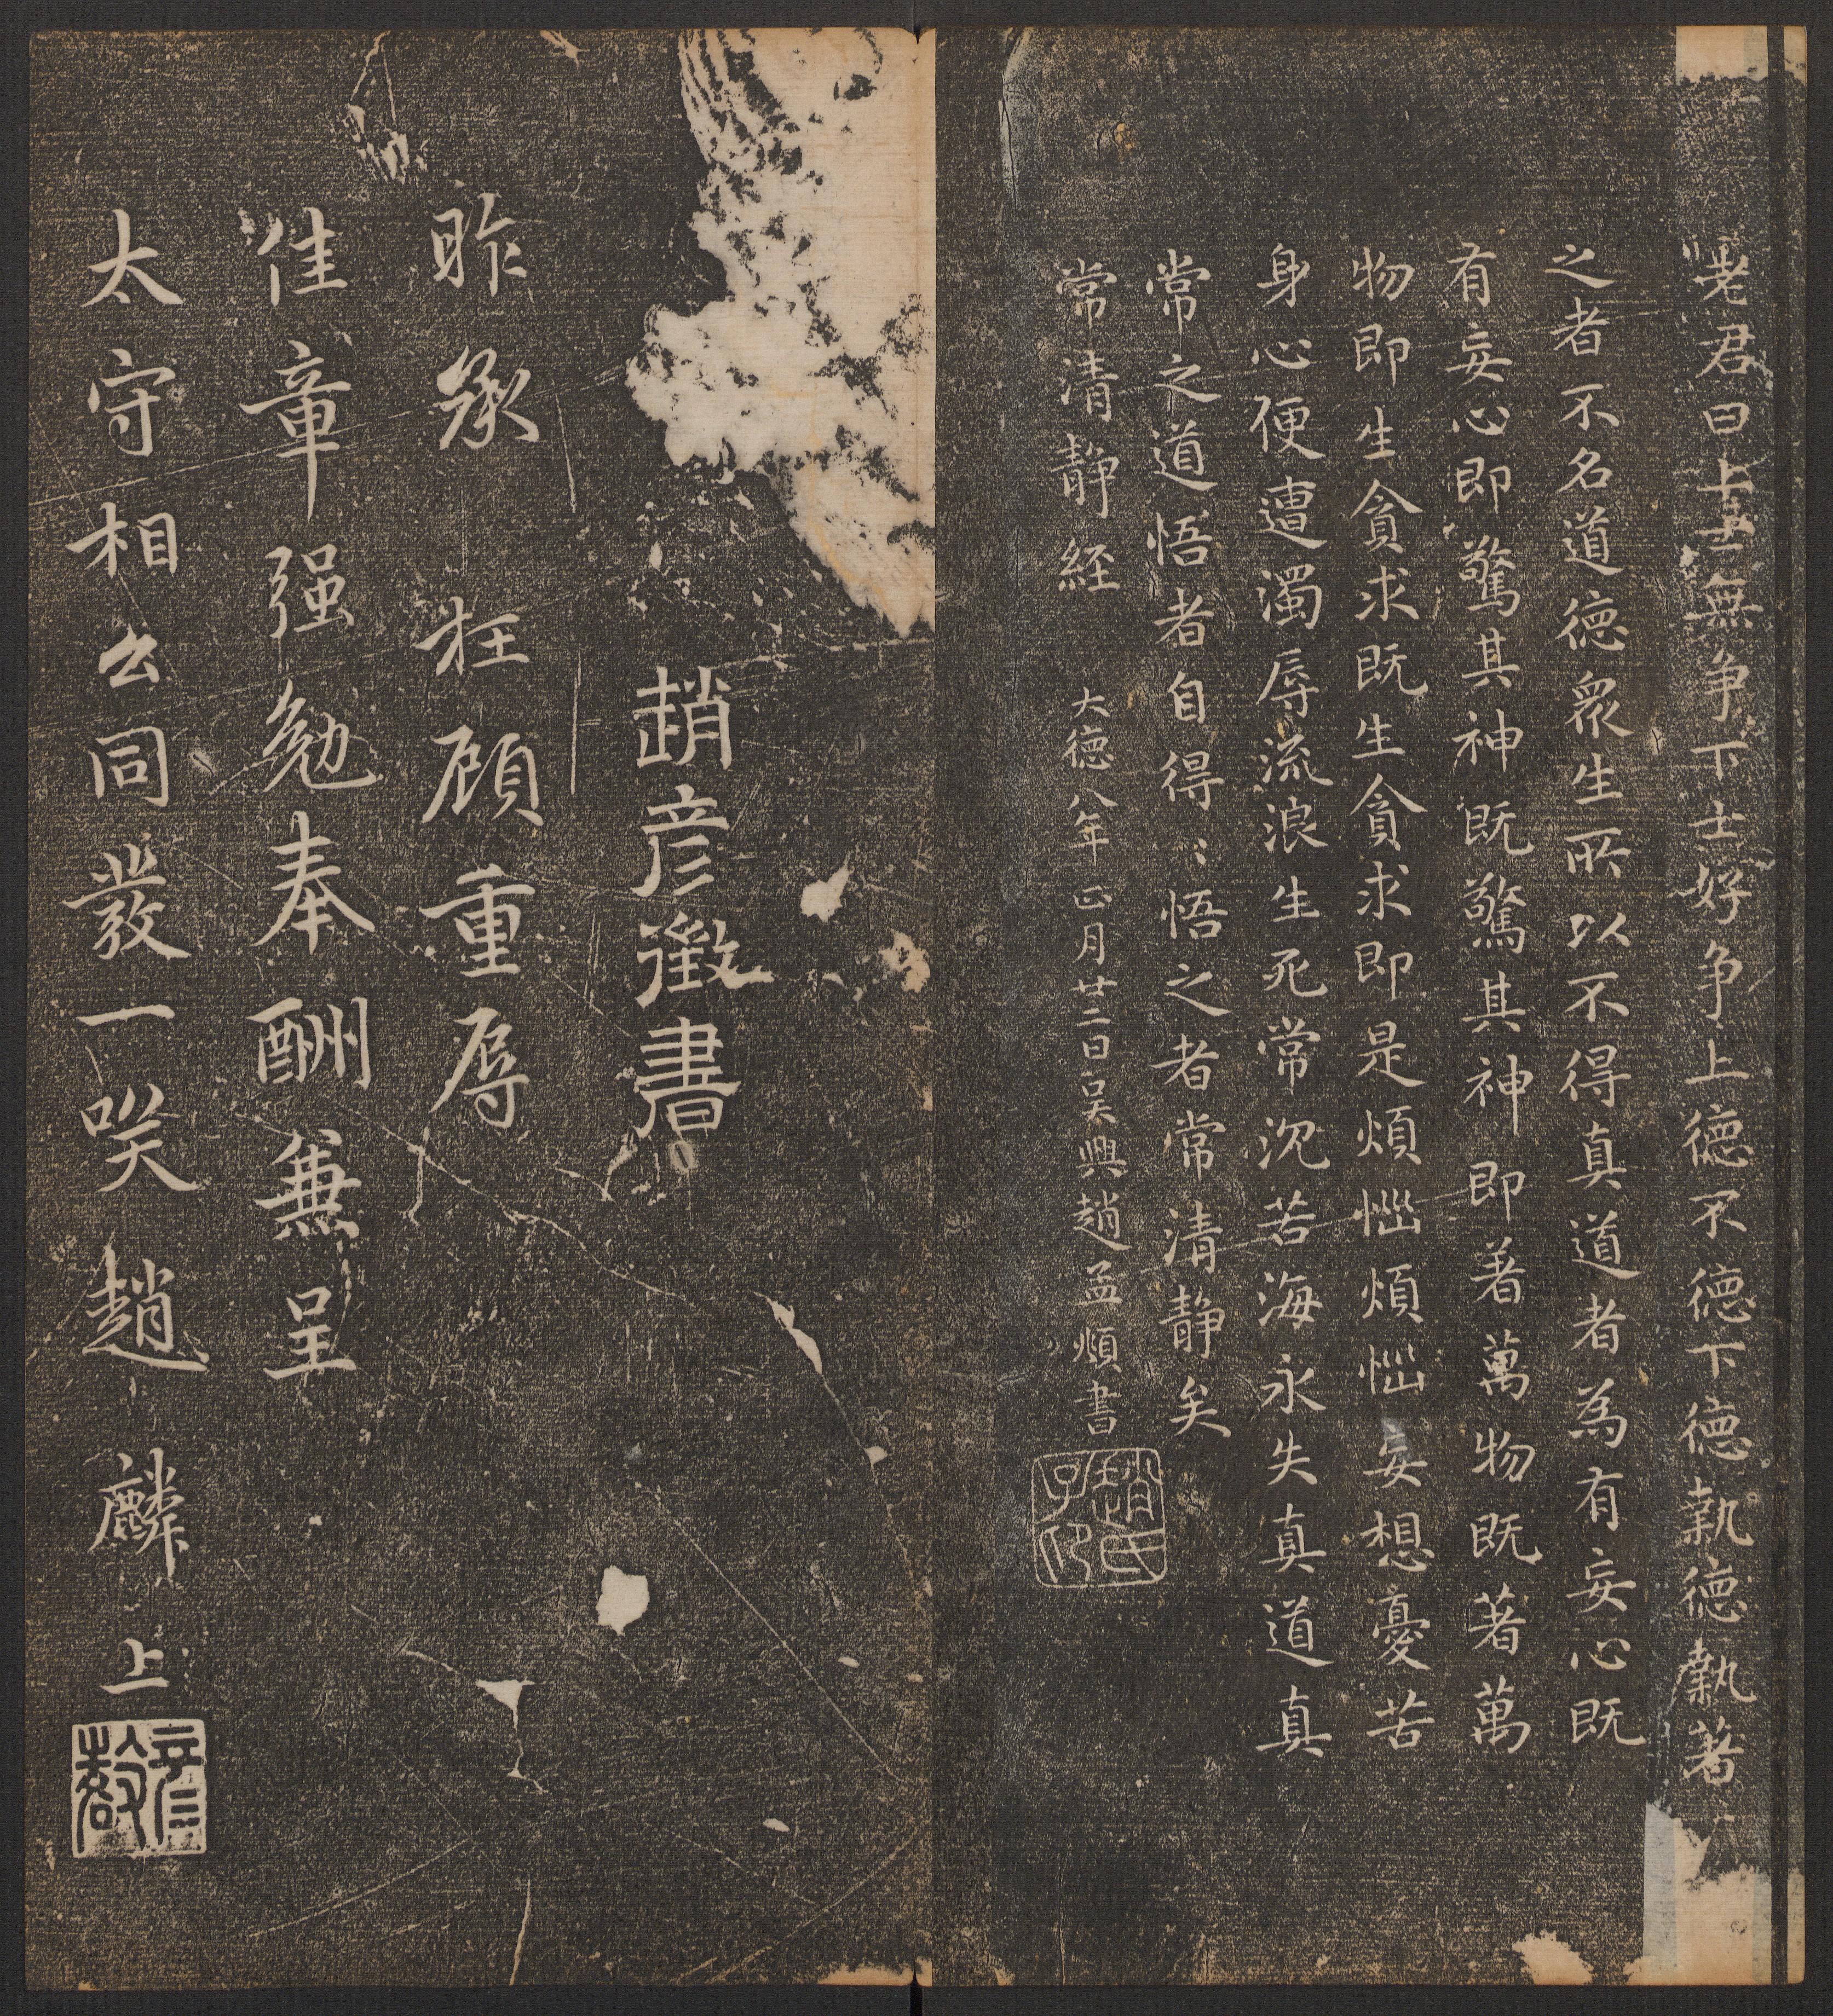 老君曰上士無争下士好争上德不德下德執德執著
之者不名道德衆生所以不得真道者為有妄心既
有妄心即驚其神既驚其神即著萬物既著萬
物即生貪求既生貪求即是煩惱煩惱妄想憂苦
身心便遭濁辱流浪生死常沉苦海永失真道真
常之道悟者自得得悟之者常清静矣
常清静經
大德八年正月廿二日吴興趙孟頫書
趙氏子昂
趙彦徵書
昨承枉顧重辱
佳章强勉奉酬兼呈
太守相公同發一咲趙麟上
彦徵